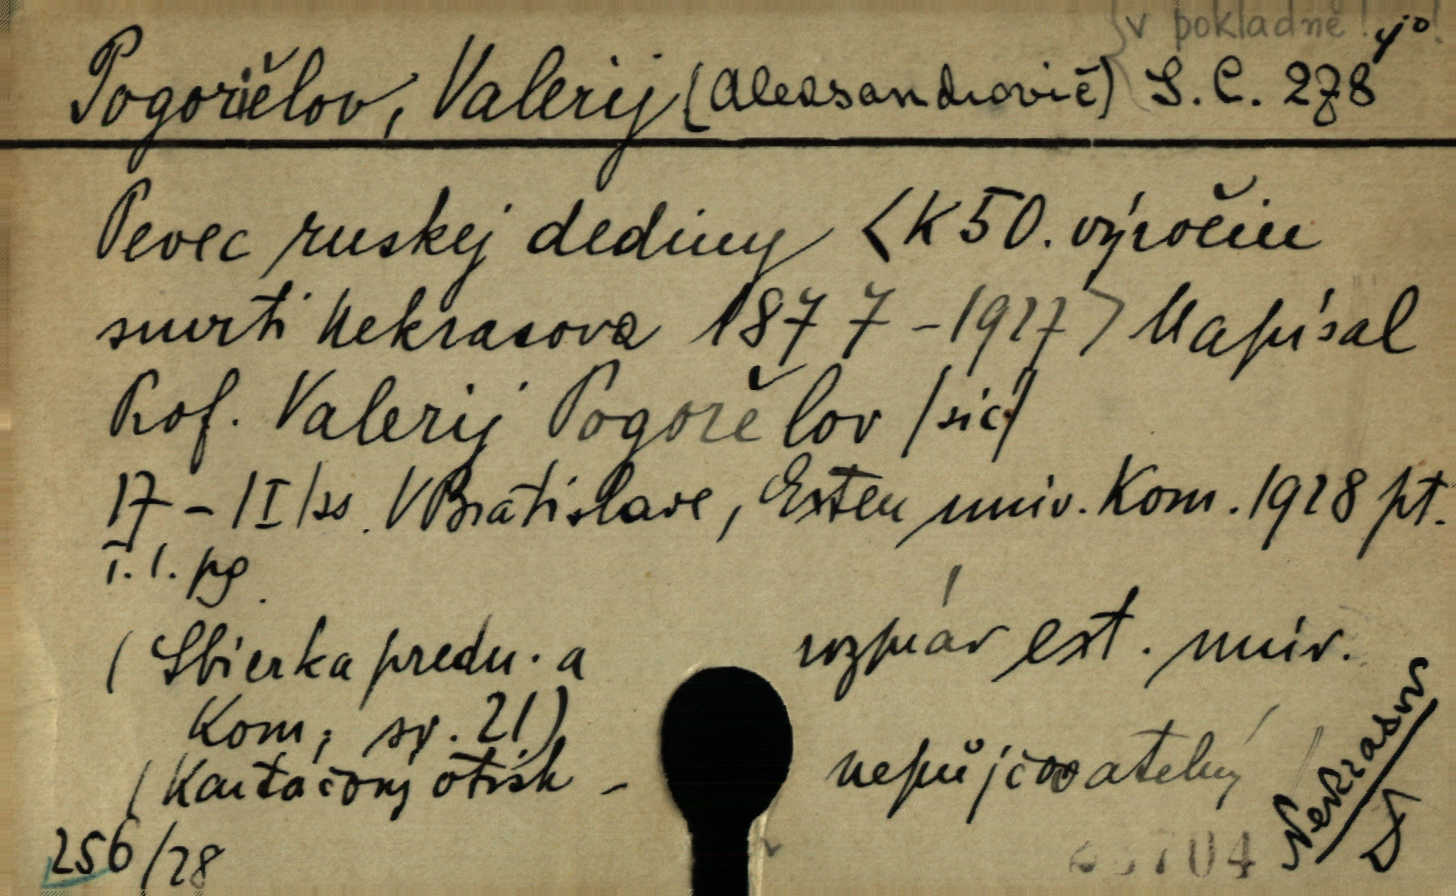 v pokladně!
Pogorělov, Valerij (Aleksandrovič) S. C. 278
Pevec ruskej dediny <K 50. výročiu
smrti Nekrasova 1877-1927> Napísal
Prof. Valerij Pogorělov /sic/
17-1I/ss. V Bratislave, Exten univ. Kom. 1928 pt.
i. l. pg.
(Sbierka predn. a rozpráv ext. univ.
Kom, sv. 21)
(Kartáčový otisk - nepůjčovatelný
Nekrasov
256/28